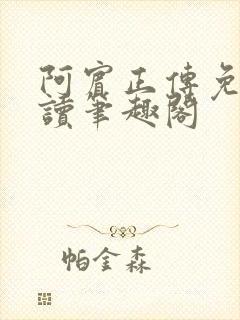 阿賓正傳免
讀筆趣閣
帕金森